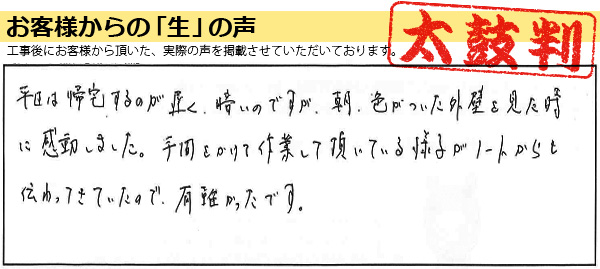 お客様からの「生」の声
太鼓判
工事後にお客様から頂いた、実際の声を掲載させていただいております。
平日は帰宅するのが遅く、暗いのですが、朝、色がついた外壁を見た時
に感動しました。手間をかけて作業して頂いている様子がノートからも
伝わってきていたので、有難かったです。